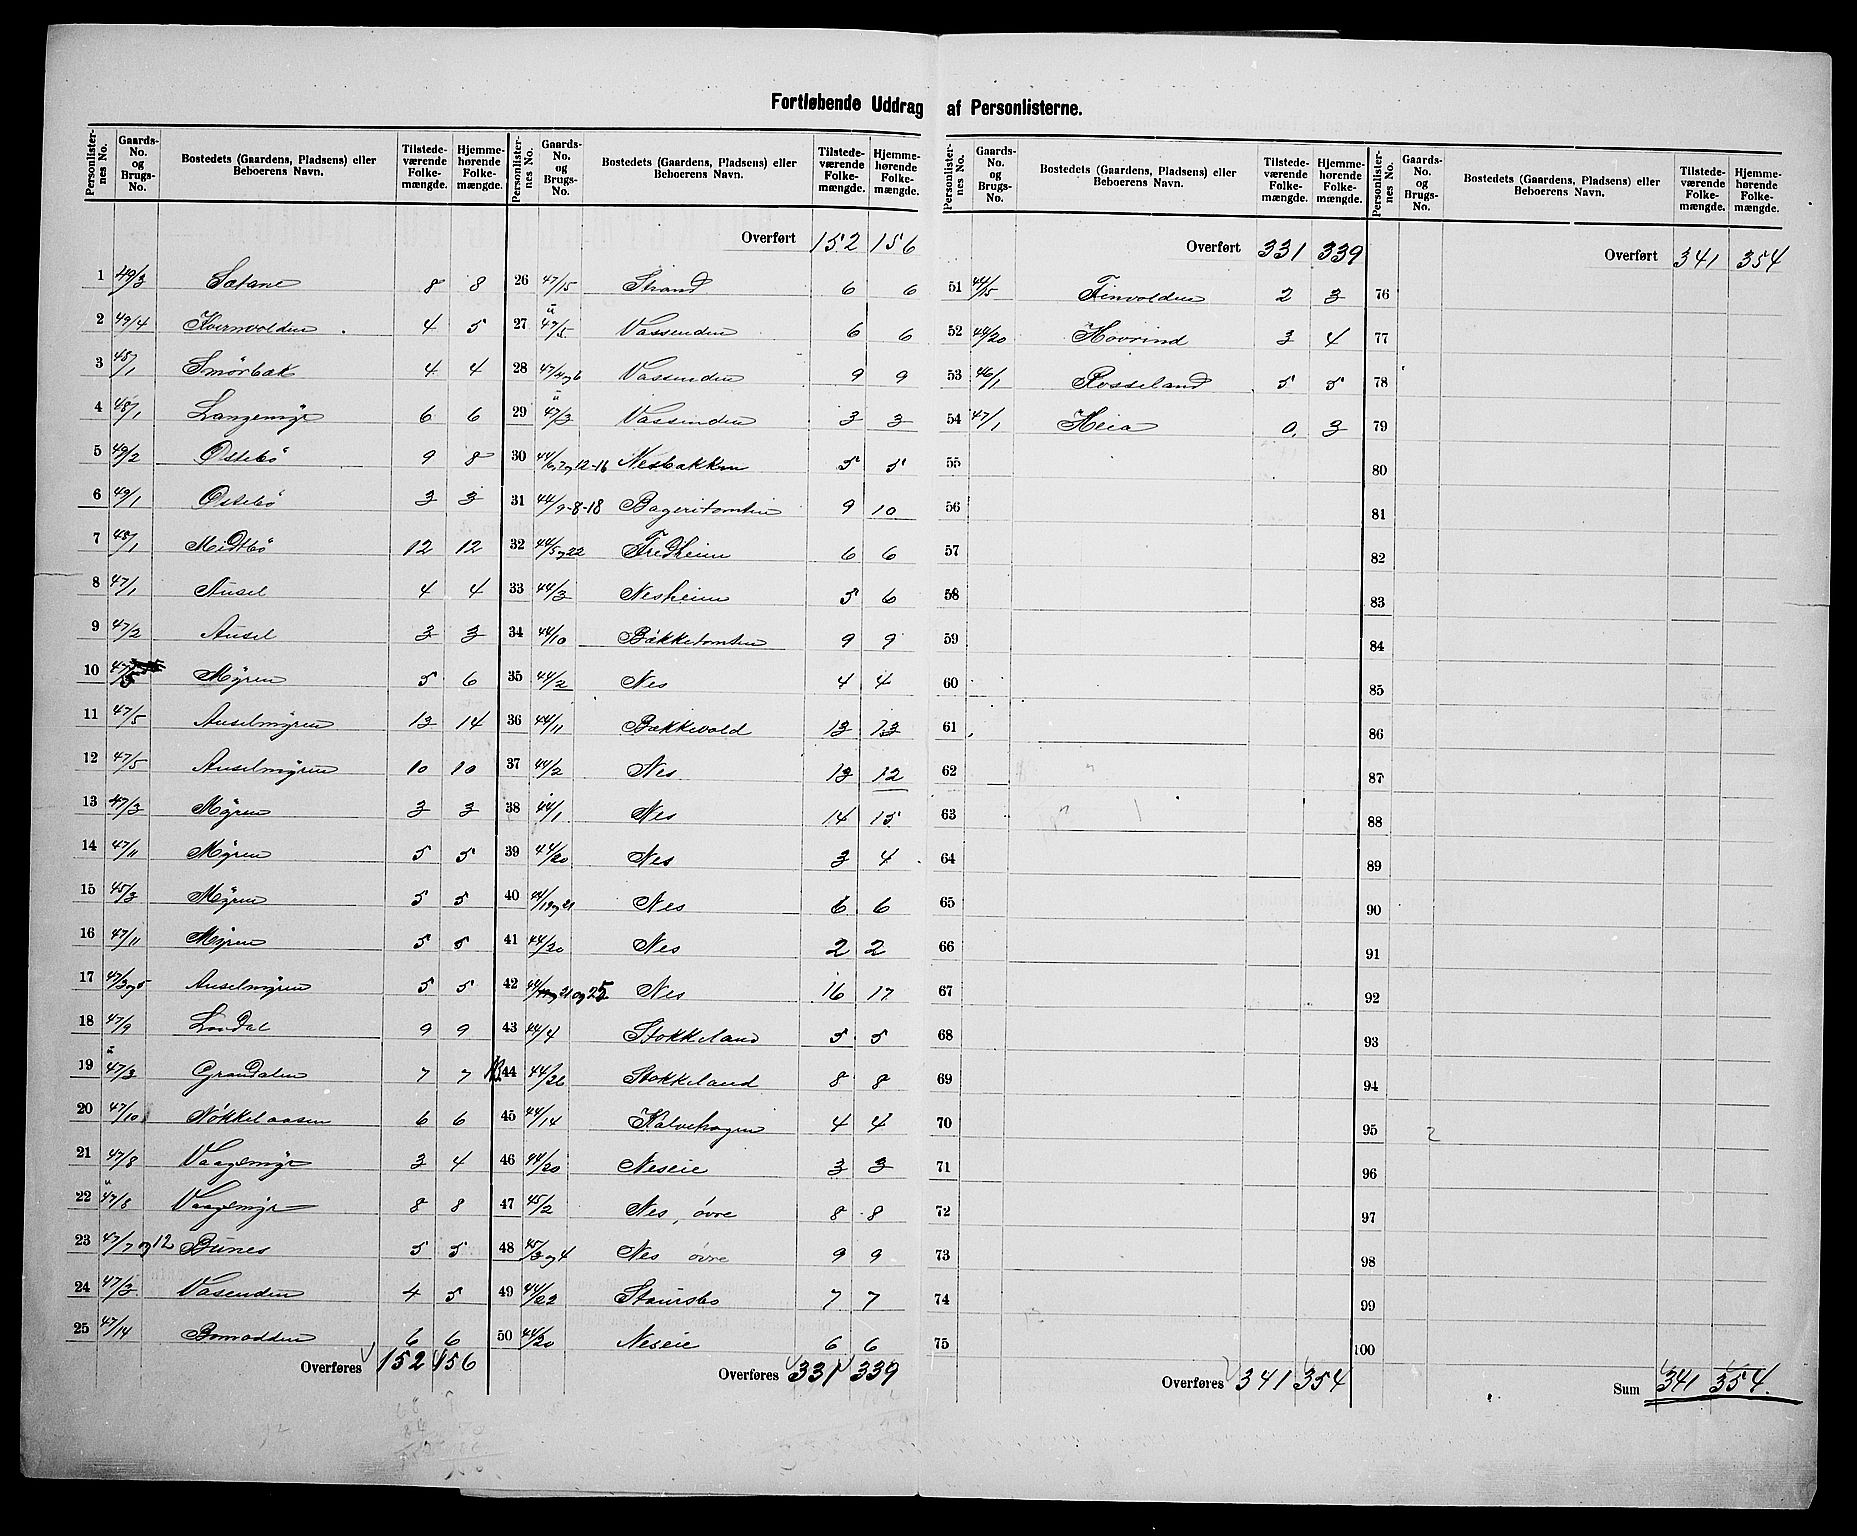 Fortløbende Uddrag af Personlisterne.
Personlister-nes No. Gaards-No. og Brugs-No. Bostedets (Gaardens, Pladsens) eller Beboerens Navn. Tilstede-værende Folke-mængde. Hjemme-hørende Folke-mængde.
1 49/3 Sætane 8 8
2 49/4 Kvernvolden 4 5
3 48/1 Smörbæk 4 4
4 48/1 Langemyr 6 6
5 49/2 Östebö 9 8
6 49/1 Östebö 3 3
7 48/1 Midtbö 12 12
8 47/1 Ausel 4 4
9 47/2 Ausel 3 3
10 47/5 Myren 5 6
11 47/5 Auselmyren 13 14
12 47/5 Auselmyren 10 10
13 47/3 Myren 3 3
14 47/11 Myren 5 5
15 45/3 Myren 5 5
16 47/11 Myren 5 5
17 47/3 og 5 Auselmyren 5 5
18 47/9 Londal 9 9
19 47/3 Grandalen 7 7
20 47/10 Nökkelaasen 6 6
21 47/8 Vaagemyr 3 4
22 47/8 Vaagemyr 8 8
23 47/7 og 12 Bunes 5 5
24 47/3 Vasenden 4 5
25 47/14 Bomodden 6 6
Overføres 152 156
Personlister-nes No. Gaards-No. og Brugs-No. Bostedets (Gaardens, Pladsens) eller Beboerens Navn. Tilstede-værende Folke-mængde. Hjemme-hørende Folke-mængde.
Overført 152 156
26 47/15 Strand 6 6
27 47/5 Vassenden 6 6
28 47/11 og 6 Vassenden 9 9
29 47/3 Vassenden 3 3
30 Nesbakken 5 5
31 44/9-8-18 Bageritomten 9 10
32 44/5 og 22 Fredheim 6 6
33 44/3 Nesheim 5 6
34 44/10 Bökketomten 9 9
35 44/2 Nes 4 4
36 44/11 Bækkevold 13 13
37 44/2 Nes 13 12
38 44/1 Nes 14 15
39 44/20 Nes 3 4
40 44/19 og 21 Nes 6 6
41 44/20 Nes 2 2
42 og 25 Nes 16 17
43 44/4 Stokkeland 5 5
44 44/26 Stokkeland 8 8
45 44/14 Kalvehagen 4 4
46 44/20 Neseie 3 3
47 45/2 Nes, øvre 8 8
48 45/3 og 4 Nes øvre 9 9
49 Staursbo 7 7
50 44/20 Neseie 6 6
Overføres 331 339
Personlister-nes No. Gaards-No. og Brugs-No. Bostedets (Gaardens, Pladsens) eller Beboerens Navn. Tilstede-værende Folke-mængde. Hjemme-hørende Folke-mængde.
Overført 331 339
51 44/15 Finvolden 2 3
52 44/20 Hovrind 3 4
53 46/1 Rosseland 5 5
54 47/1 Heia 0. 3
55
56
57
58
59
60
61
62
63
64
65
66
67
68
69
70
71
72
73
74
75
Overføres 341 354
Personlister-nes No. Gaards-No. og Brugs-No. Bostedets (Gaardens, Pladsens) eller Beboerens Navn. Tilstede-værende Folke-mængde. Hjemme-hørende Folke-mængde.
Overført 341 354
76
77
78
79
80
81
82
83
84
85
86
87
88
89
90
91
92
93
94
95
96
97
98
99
100
Sum 341 354.